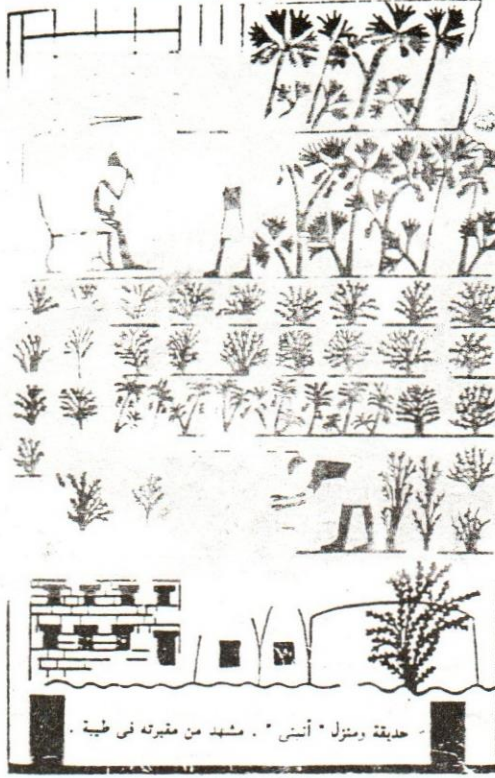 - حديقة ومنزل " أنبنى " . مشهد من مقبرته فى طيبة .